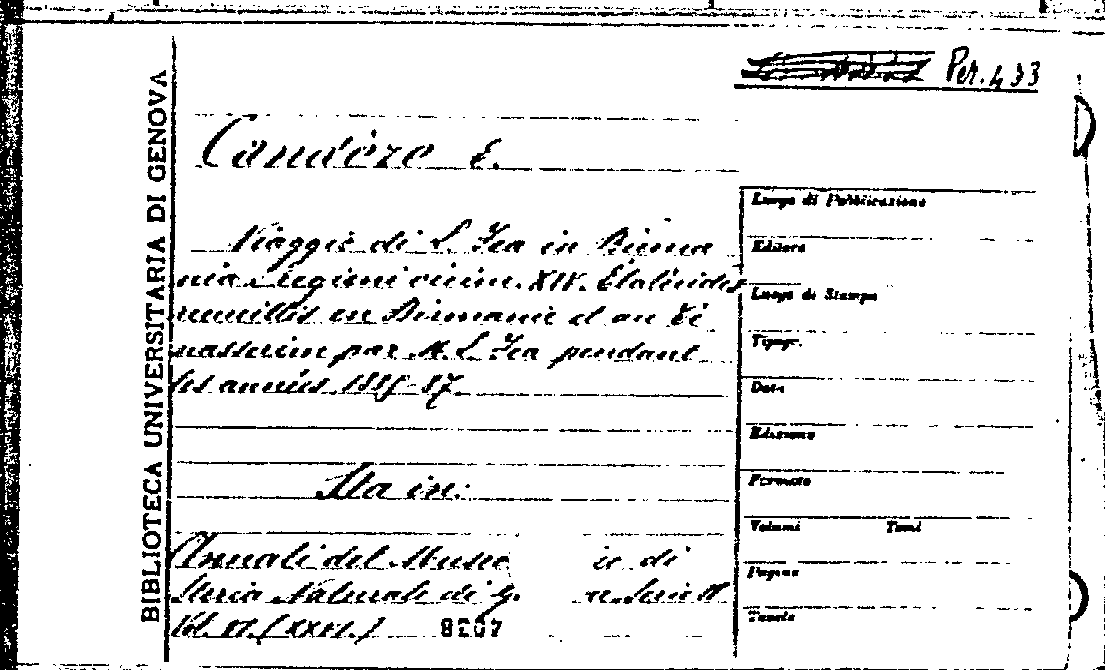 Per. 433
BIBLIOTECA UNIVERSITARIA DI GENOVA
Candèze E.
Viaggio di L. Fea in Birma
nia e regioni vicine. XIV. Elatérides
recueillis en Birmanie et au Té
nasserim par M. L. Fea pendant
les années 1885-87.
Sta in:
Annali del Museo di
Storia Naturale di G. Serie II
Vol. VI. (XXVI.) 8207
Luogo di Pubblicazione
Editore
Luogo di Stampa
Tipogr.
Data
Edizione
Formato
Volumi Tomi
Pagine
Tavole